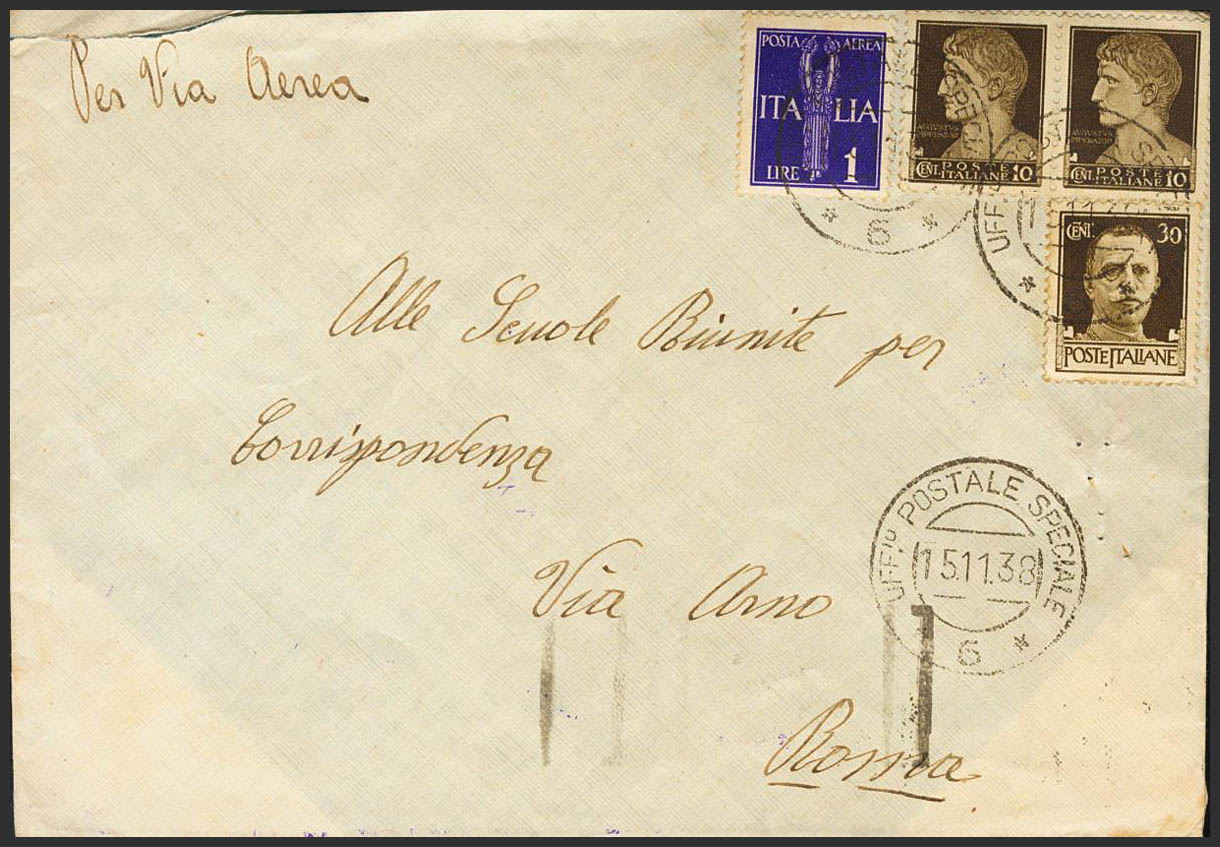 Per Via Aerea
POSTA AEREA
ITALIA
LIRE 1
AUGUSTUS
IMPERATOR
POSTE
CENT. ITALIANE 10
AUGUSTUS
IMPERATOR
POSTE
CENT. ITALIANE 10
CENT. 30
POSTE ITALIANE
6
UFF
Alle Scuole Riunite per
Corrispondenza
UFFIO POSTALE SPECIALE
15.11.38
6
Via Arno
Roma